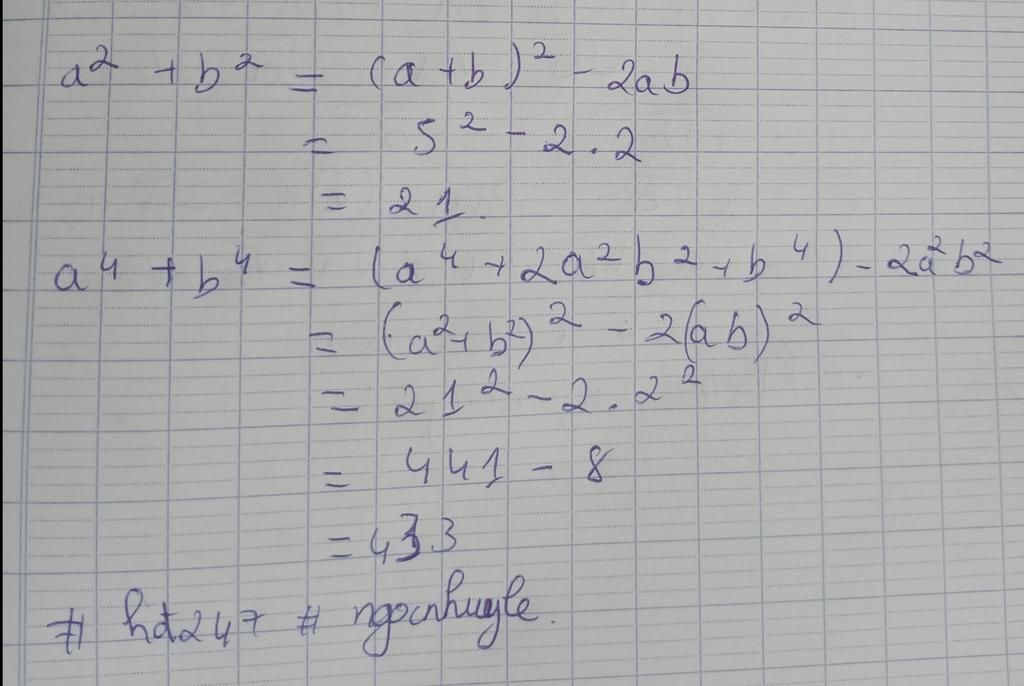 a² + b² = (a + b)² - 2ab
= 5² - 2 . 2
= 21
a⁴ + b⁴ = (a⁴ + 2a²b² + b⁴) - 2a²b²
= (a² + b²)² - 2(ab)²
= 21² - 2 . 2²
= 441 - 8
= 433
# hđ247 # ngocnhuyle.